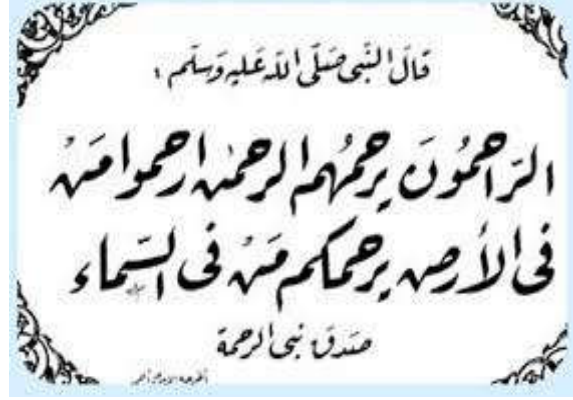 قَالَ النَّبِي صَلَّى اللَّه عَلَيْهِ وَسَلَّم :
الرَّاحِمُونَ يَرحَمُهُم الرحمٰن ارحموا مَنْ
فى الأَرض يرحمكم مَنْ فى السَّماء
صَدَقَ نبى الرحمة